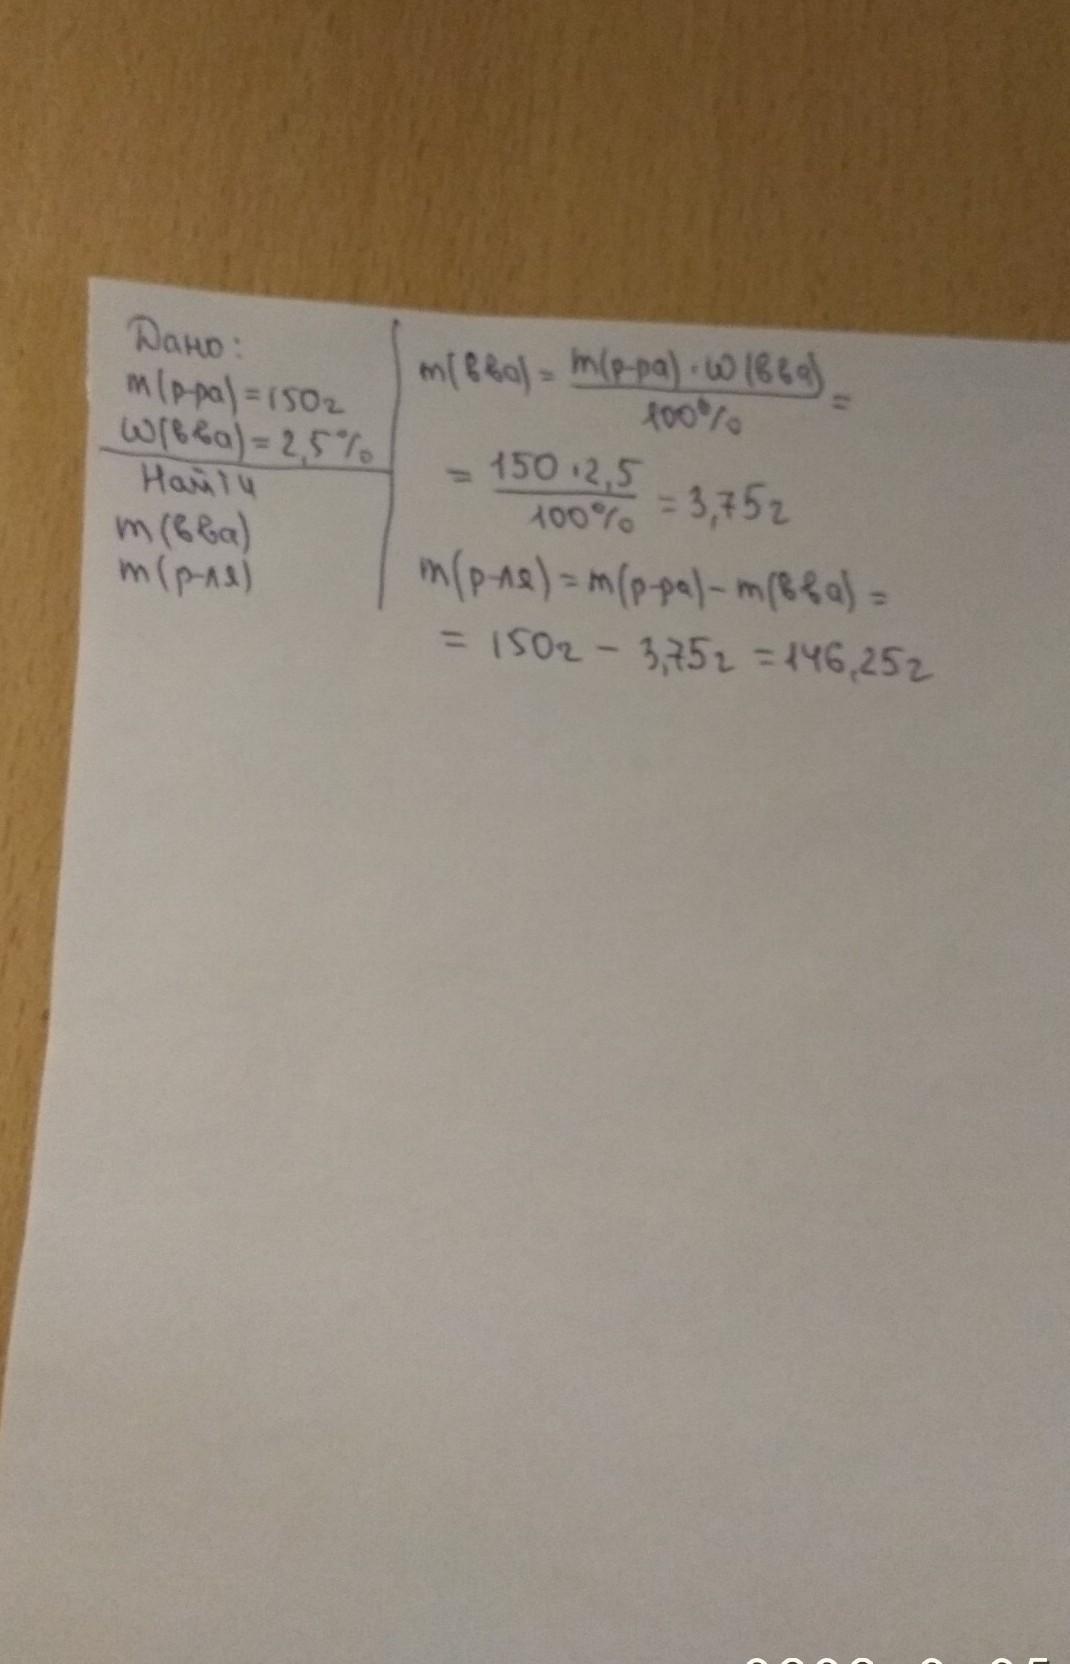 Дано:
m(р-ра)=150г
ω(вва)=2,5%
Найти
m(вва)
m(р-ля)
m(вва) = m(р-ра)·ω(вва) / 100% =
= 150·2,5 / 100% = 3,75г
m(р-ля) = m(р-ра) - m(вва) =
= 150г - 3,75г = 146,25г